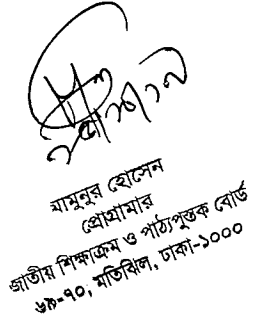 মামুনুর হোসেন
প্রোগ্রামার
জাতীয় শিক্ষাক্রম ও পাঠ্যপুস্তক বোর্ড
৬৯-৭০, মতিঝিল, ঢাকা-১০০০